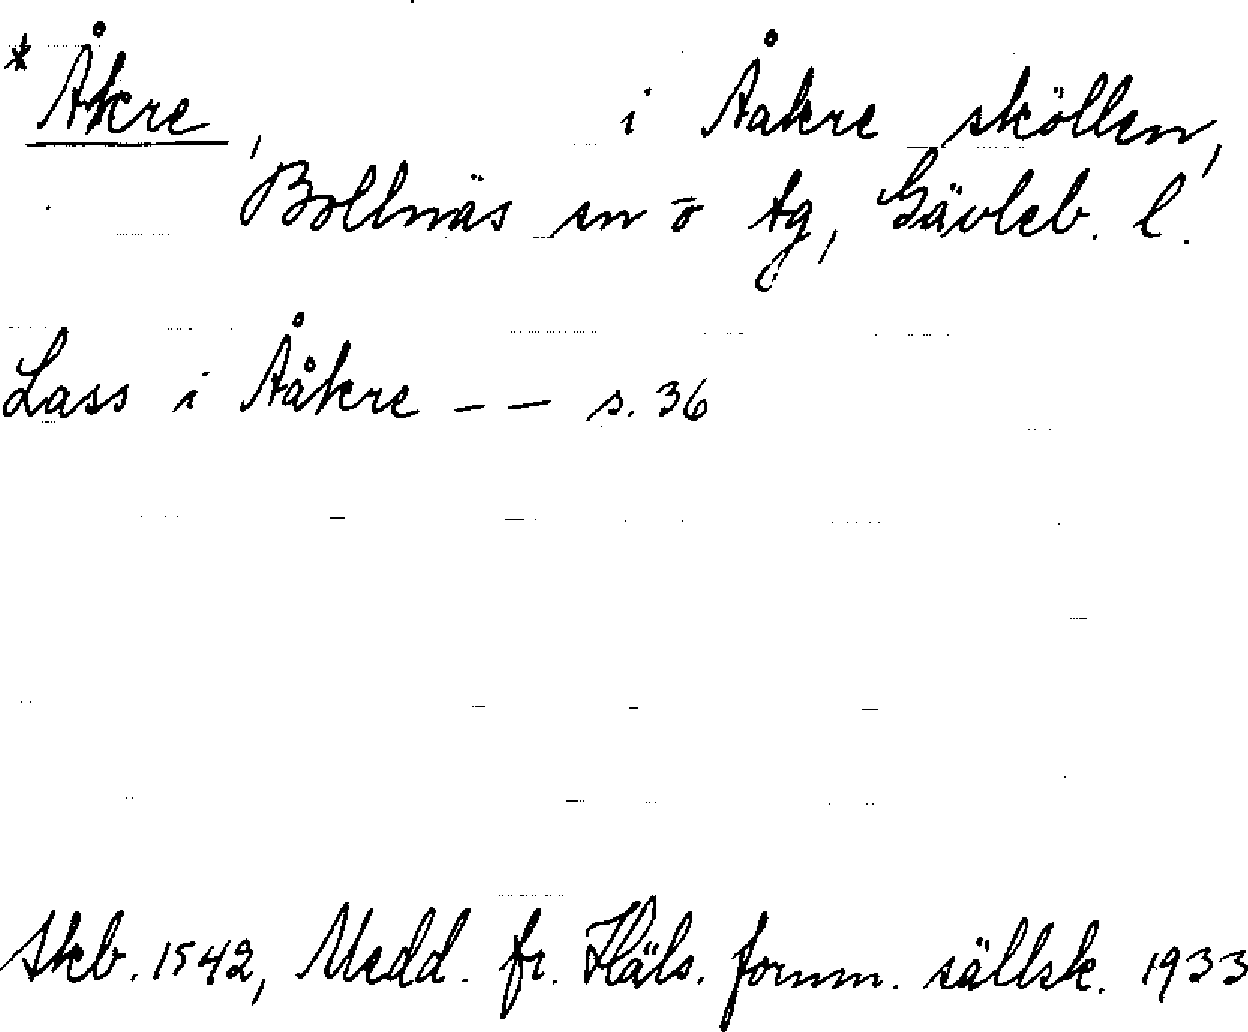 * Åkre, i Åakre sköllen,
Bollnäs sn o tg, Gävleb. l.
Lass i Ååkre – – s. 36
Skb. 1542, Medd. fr. Häls. fornm. sällsk. 1933